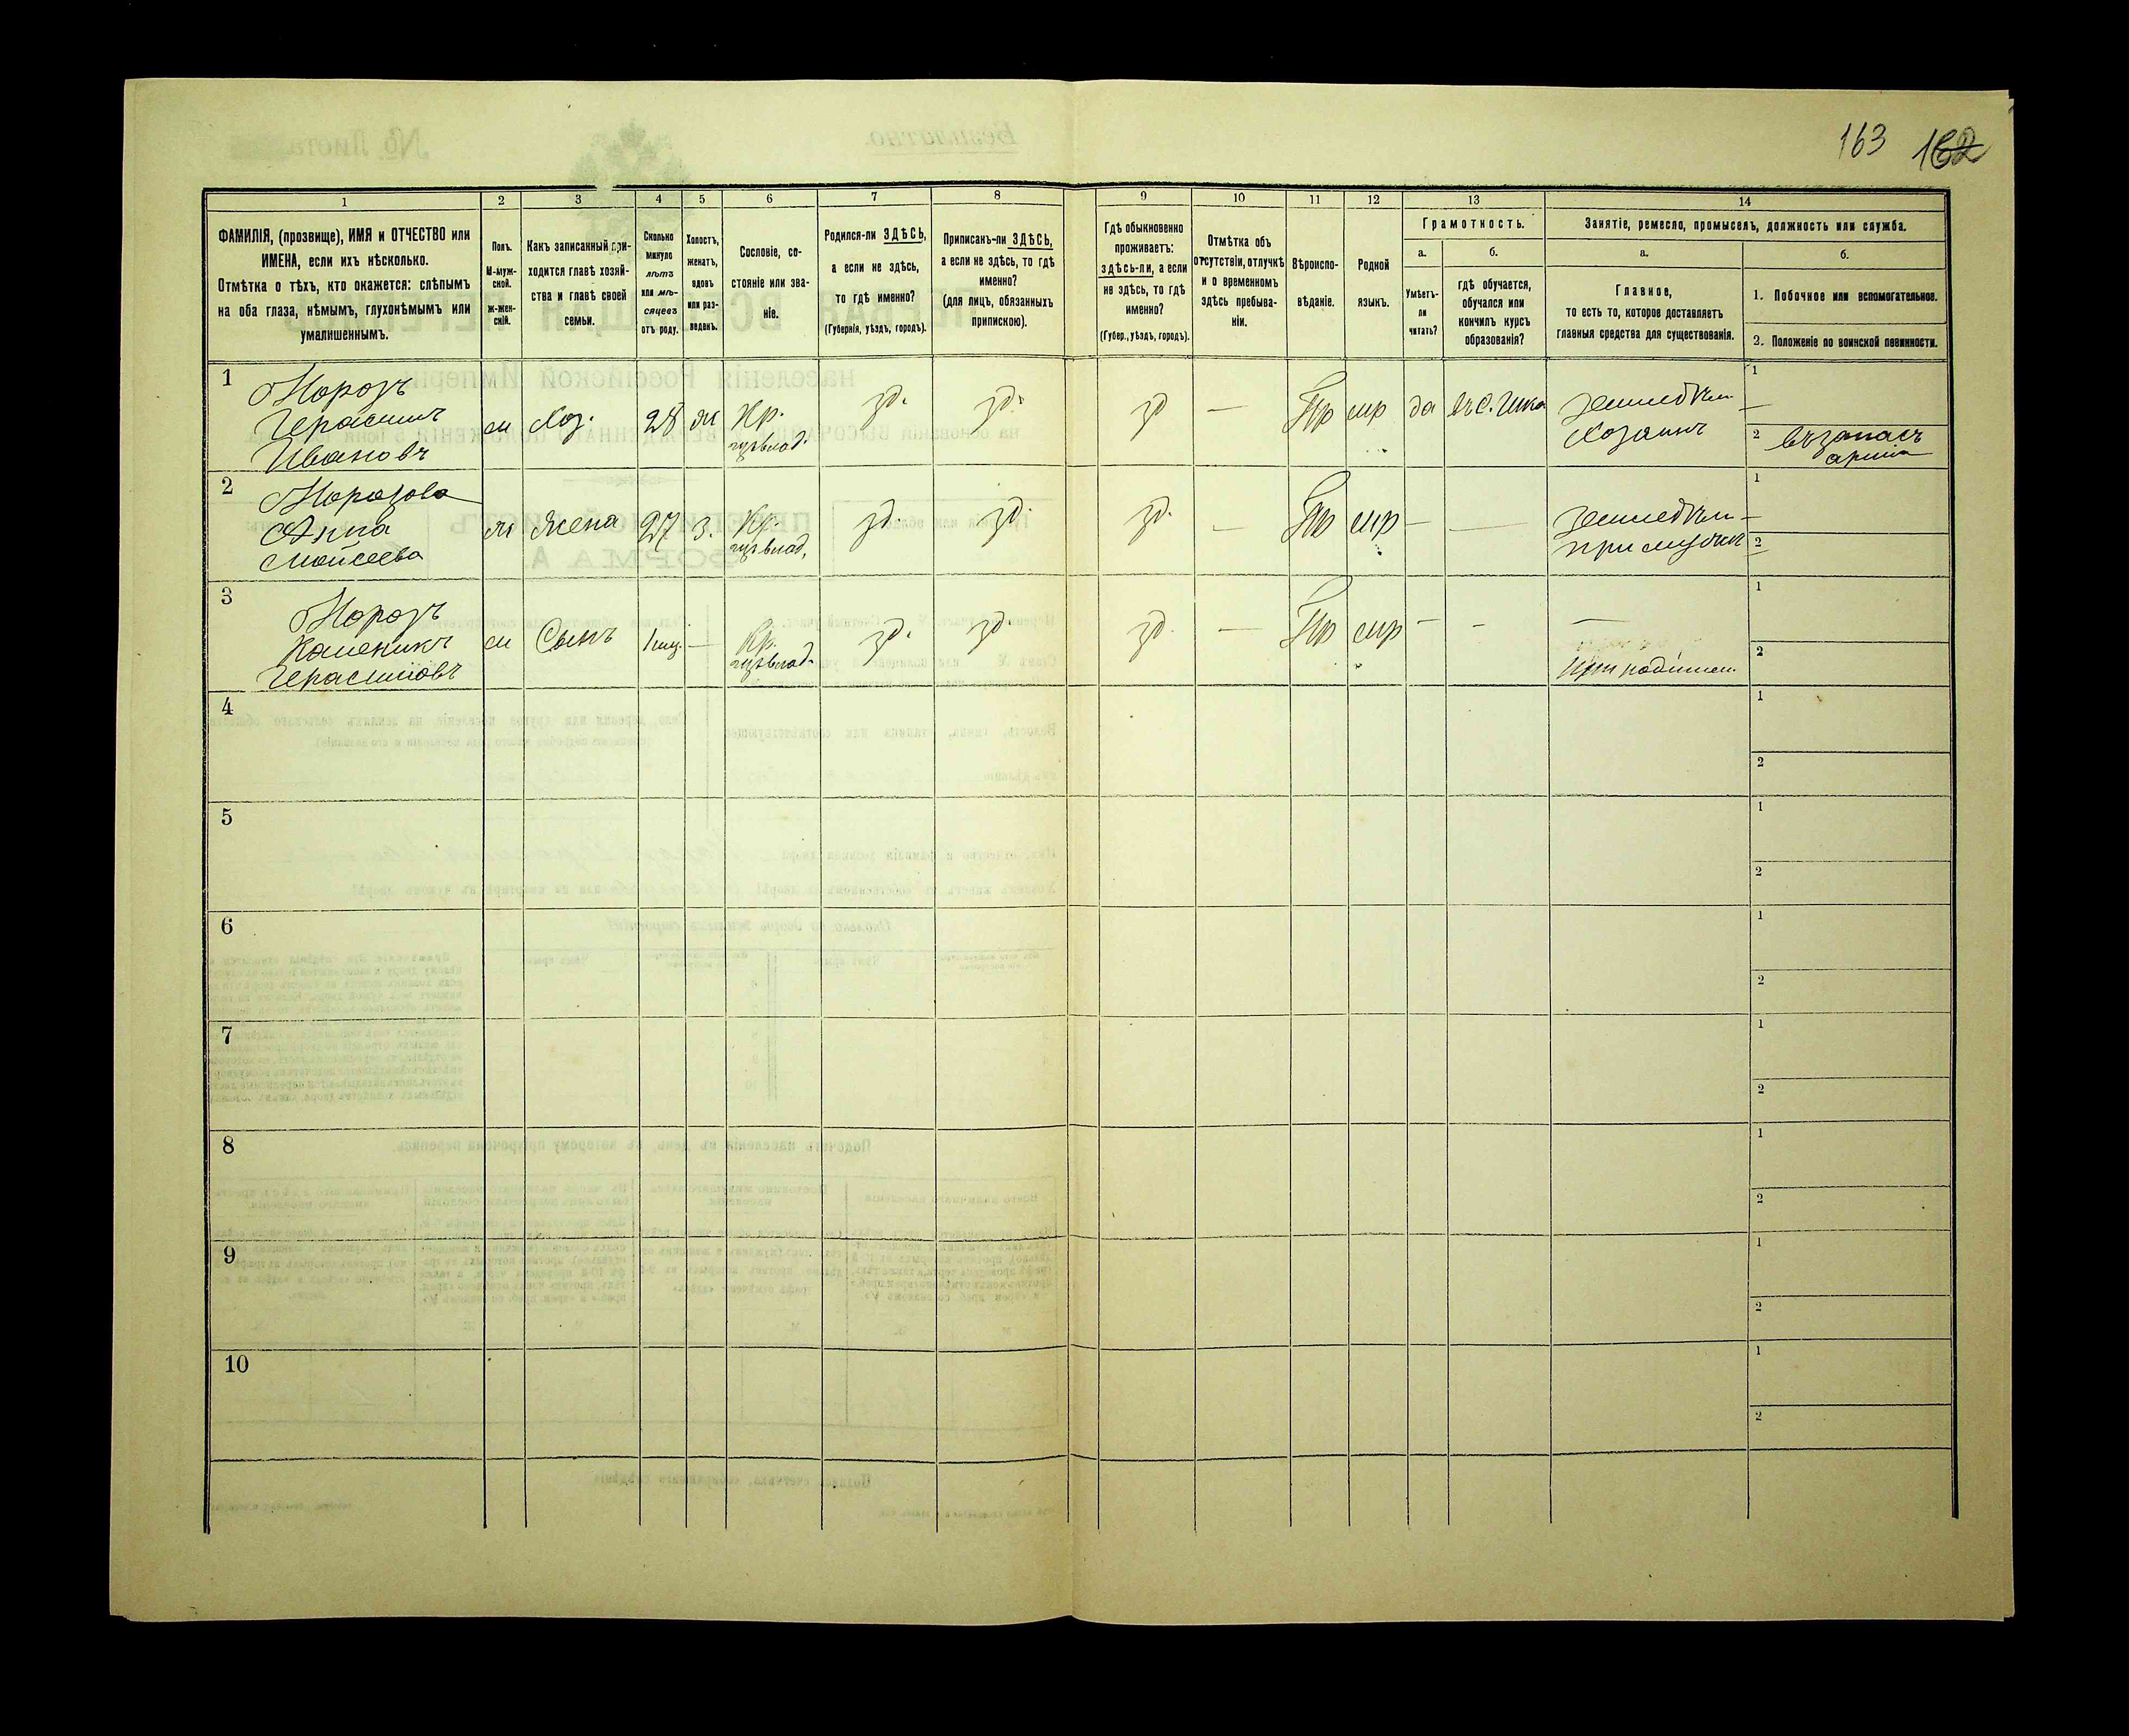 163 162
1 2 3 4 5 6 7 8 9 10 11 12 13 14
ФАМИЛІЯ, (прозвище), ИМЯ и ОТЧЕСТВО или
ИМЕНА, если ихъ нѣсколько.
Отмѣтка о тѣхъ, кто окажется: слѣпымъ
на оба глаза, нѣмымъ, глухонѣмымъ или
умалишеннымъ.
Полъ.
М-муж-
ской.
ж-жен-
скій.
Какъ записанный при-
ходится главѣ хозяй-
ства и главѣ своей
семьи.
Сколько
минуло
лѣтъ
или мѣ-
сяцевъ
отъ роду.
Холостъ,
женатъ,
вдовъ
или раз-
веденъ.
Сословіе, со-
стояніе или зва-
ніе.
Родился-ли ЗДѢСЬ,
а если не здѣсь,
то гдѣ именно?
(Губернія, уѣздъ, городъ).
Приписанъ-ли ЗДѢСЬ,
а если не здѣсь, то гдѣ
именно?
(для лицъ, обязанныхъ
припискою).
Гдѣ обыкновенно
проживаетъ:
здѣсь-ли, а если
не здѣсь, то гдѣ
именно?
(Губер., уѣздъ, городъ).
Отмѣтка объ
отсутствіи, отлучкѣ
и о временномъ
здѣсь пребыва-
ніи.
Вѣроиспо-
вѣданіе.
Родной
языкъ.
Грамотность.
а.
Умѣетъ-
ли
читать?
б.
гдѣ обучается,
обучался или
кончилъ курсъ
образованія?
Занятіе, ремесло, промыселъ, должность или служба.
а.
Главное,
то есть то, которое доставляетъ
главныя средства для существованія.
б.
1. Побочное или вспомогательное.
2. Положеніе по воинской повинности.
1
Морозъ
Герасимъ
Ивановъ
м Хоз. 28 ж Кр.
зд. зд. зд — Пр мр да
Хозяинъ
1 —
2 въ запасѣ
арміи
2
Морозова
Анна
Мойсеева
ж Жена 27 з. Кр.
зд. зд. зд. — Пр мр — —
1 —
2
3
Морозъ
Каленикъ
Герасимовъ
м Сынъ — Кр.
зд. зд. зд. — Пр мр — — —
1
2
4
1
2
5
1
2
6
1
2
7
1
2
8
1
2
9
1
2
10
1
2